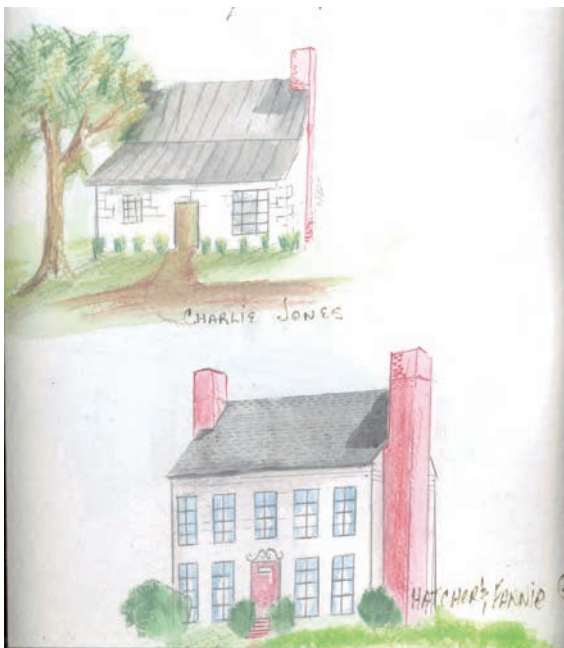 CHARLIE JONES
HATCHER & FANNIE